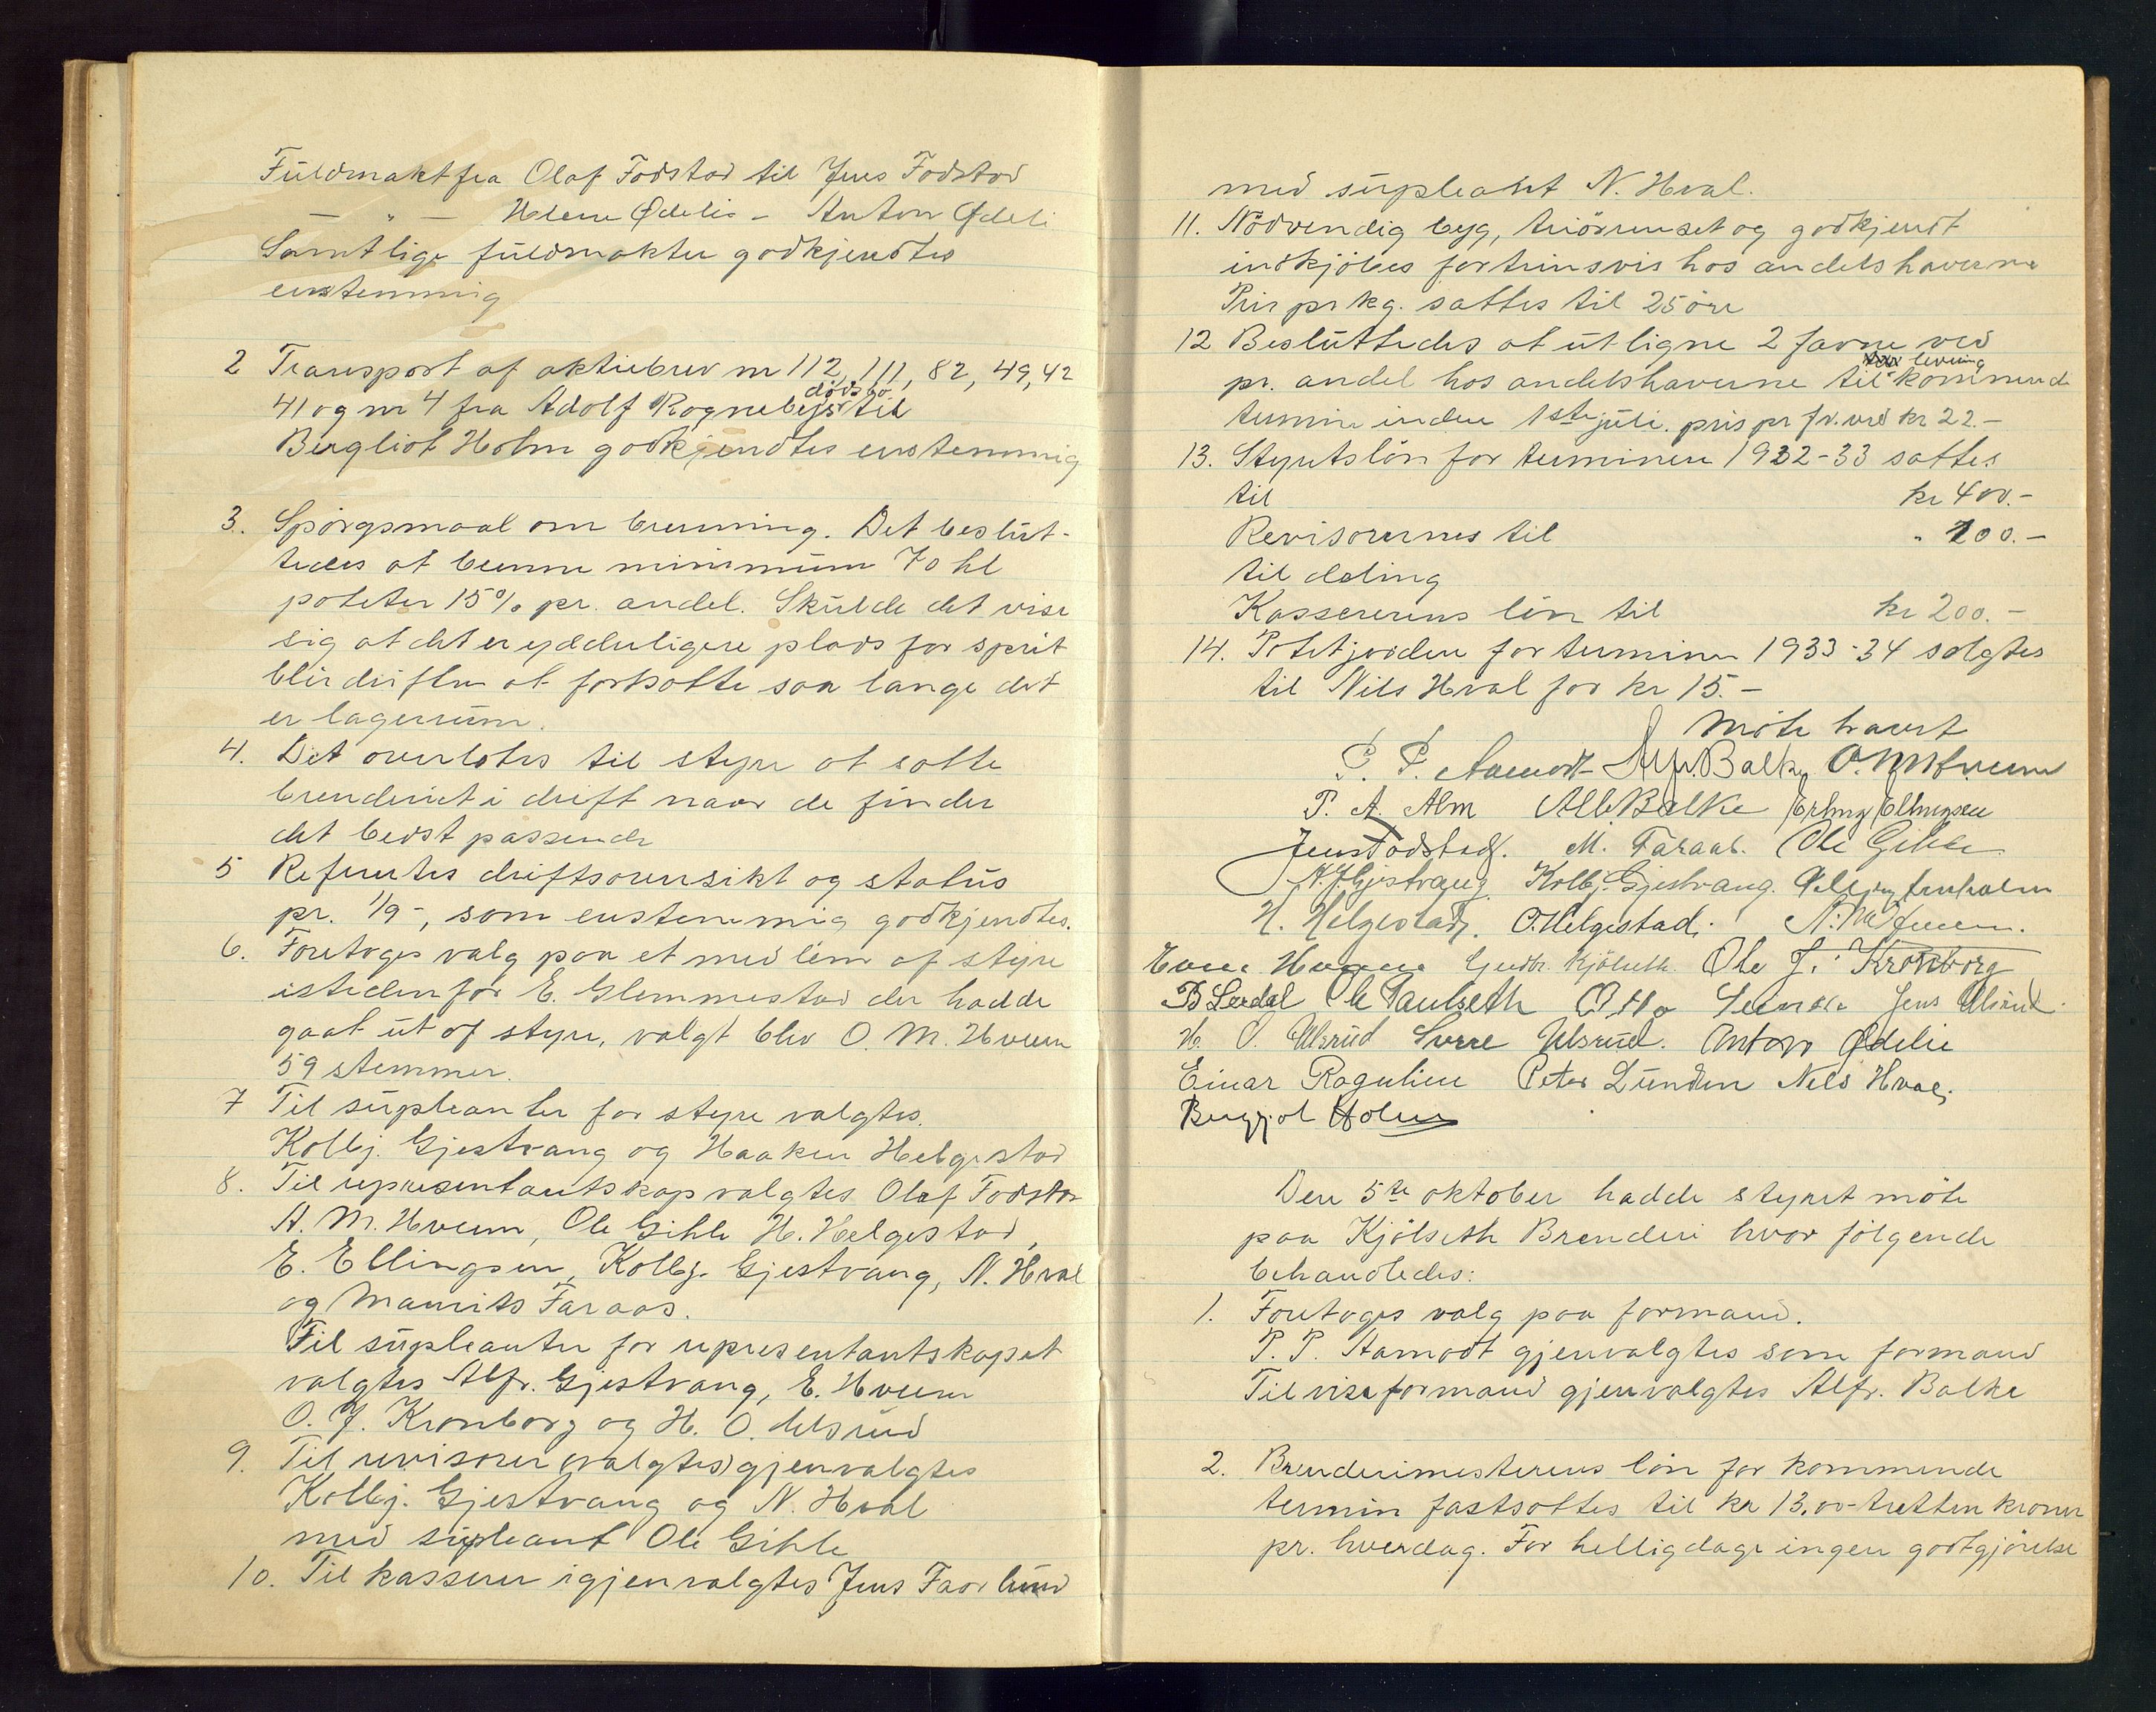 Fuldmakt fra Olaf Fodstad til Jens Fodstad
— " — Helene Ødelie - Anton Ødeli
Samtlige fuldmakter godkjendtes
enstemmig
2 Transport af aktiebrev nr 112, 111, 82, 49, 42
41 og nr 4 fra Adolf Rognebys dödsbo til
Bergliot Holm godkjendtes enstemmig
3. Spörgsmaal om brenning. Det beslut-
tedes at brenne minimum 70 hl
poteter 15% pr. andel. Skulde det vise
sig at det er ydderligere plads for sprit
blir driften at fortsatte saa lange det
er lagerrum.
4. Det overlates til styre at satte
brenderiet i drift naar de finder
det bedst passende
5 Refertes driftsoversikt og status
pr. 1/9-, som enstemmig godkjendtes.
6. Foretoges valg paa et medlem af styre
istedenfor E. Glemmestad der hadde
gaat ut af styre, valgt blev O. M. Hveem
59 stemmer.
7 Til supleanter for styre valgtes.
Kolbj. Gjestvang og Haaken Helgestad
8. Til representantskap valgtes Olaf Fodstad
A. M. Hveem, Ole Gihle H. Helgestad,
E. Ellingsen, Kolbj. Gjestvang, N. Hval
og Maurits Faraas.
Til supleanter for representantskapet
valgtes Alfr. Gjestvang, E. Hveem
O. J. Kronborg og H. O. Ulsrud
9. Til revisorer (valgtes) gjenvalgtes
Kolbj. Gjestvang og N. Hval
med supleant Ole Gihle
10. Til kasserer igjenvalgtes Jens Faarlund
med supleant N. Hval.
11. Nödvendig byg, triörrenset og godkjendt
indkjöbes fortrinsvis hos andelshaverne
Pris pr kg. sattes til 25 öre
12 Besluttedes at utligne 2 favne ved
pr. andel hos andelshaverne til levering kommende
termin inden 1ste juli. pris pr fv. ved kr 22.-
13. Styrets lön for terminen 1932-33 sattes
til kr 400.-
Revisorernes til " 100.-
til deling
Kassererens lön til kr 200.-
14. Potetjorden for terminen 1933-34 solgtes
til Nils Hval for kr 15.-
Möte havet
P. P. Aamodt Alfr. Balke O. M. Hveem
P. A. Alm Alb. Balke Erling Ellingsen
Jens Fodstad. M. Faraas. Ole Gihle
A. Gjestvang Kolbj. Gjestvang.
H. Helgestad. O. Helgestad. A. M. Hveem.
Hveem Gudbr. Kjölseth. Ole J. Kronborg
B Lerdal Ole Paulseth Otto Jens Ulsrud.
H. O. Ulsrud Sverre Ulsrud. Anton Ødelie
Einar Rogulien Peter Lunden Nils Hval.
Bergljot Holm
Den 5te oktober hadde styret möte
paa Kjölseth Brenderi hvor fölgende
behandledes:
1. Foretoges valg paa formand.
P. P. Aamodt gjenvalgtes som formand
Til viseformand gjenvalgtes Alfr. Balke
2. Brenderimesterens lön for kommende
termin fastsattes til kr 13.00-tretten kroner
pr. hverdag. For helligdage ingen godtgjörelse